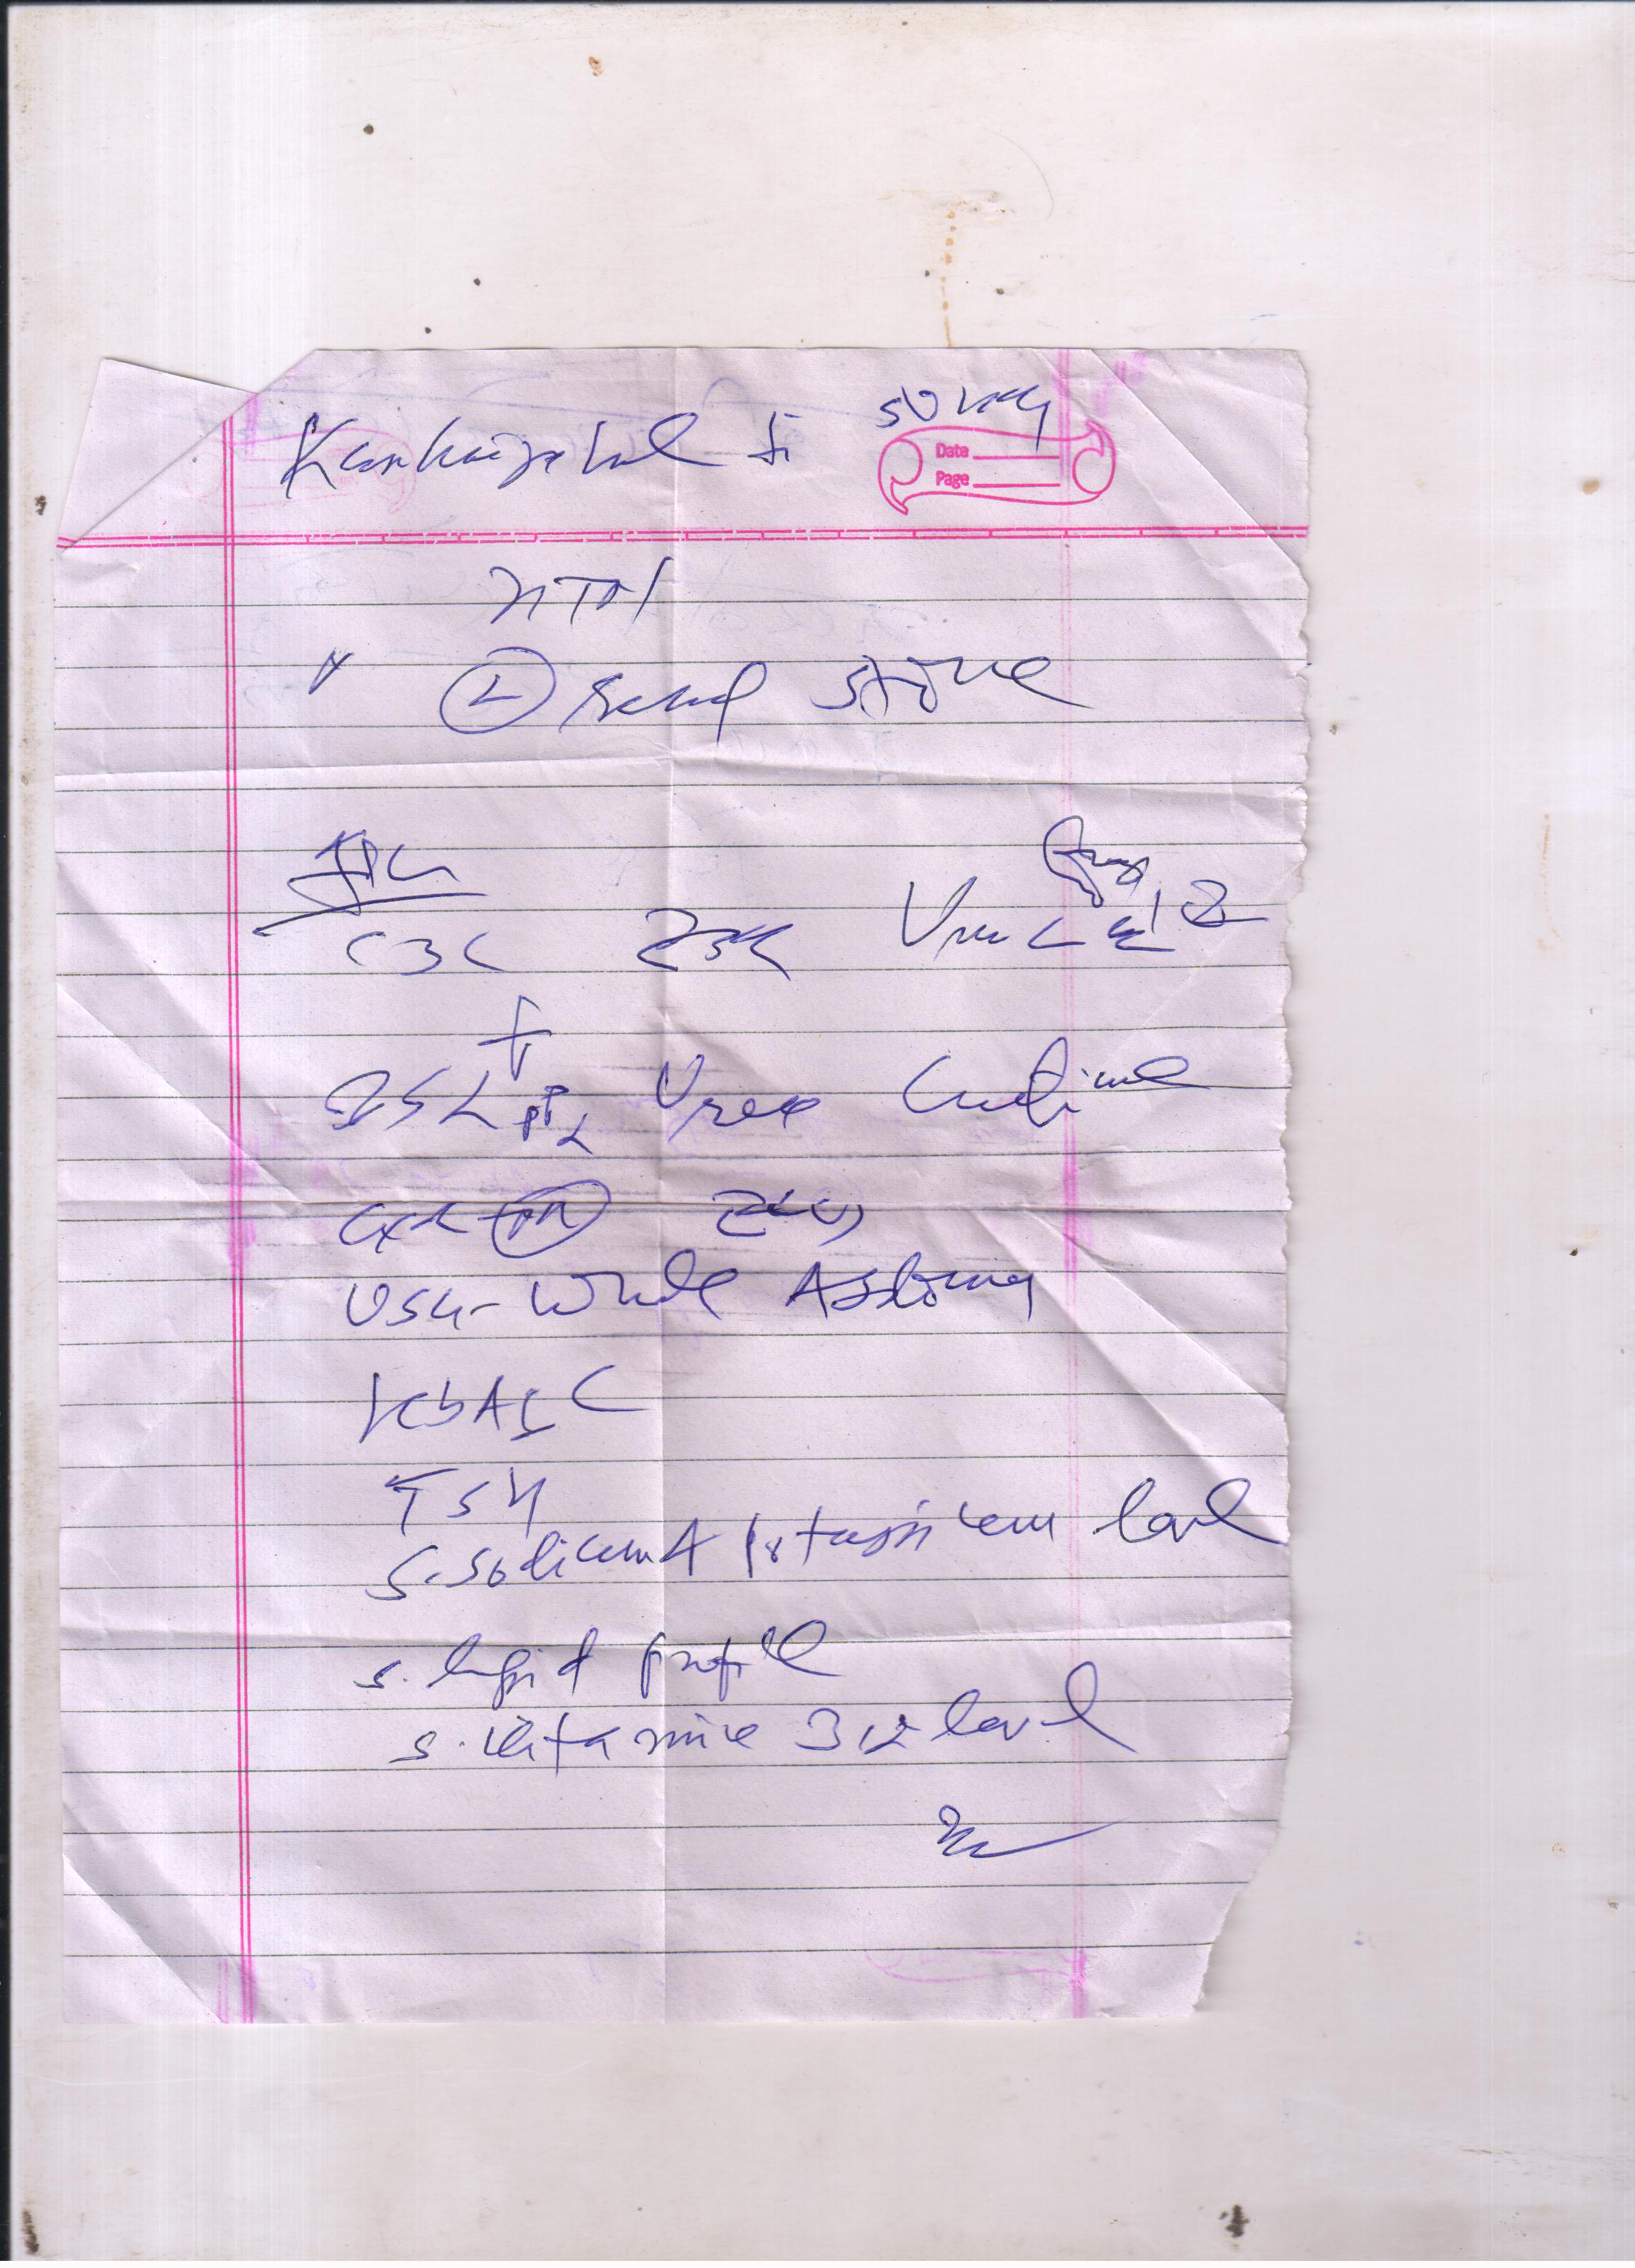 Kanhaiyalal Ji 50 kg
Date
Page
HTN
L Renal stone
CBC ESR Urine
Urea Creatinine
CXR PA ECG
USG - Whole Abdomen
HbA1C
TSH
S. Sodium & Potassium level
S. lipid profile
S. Vitamine B12 level